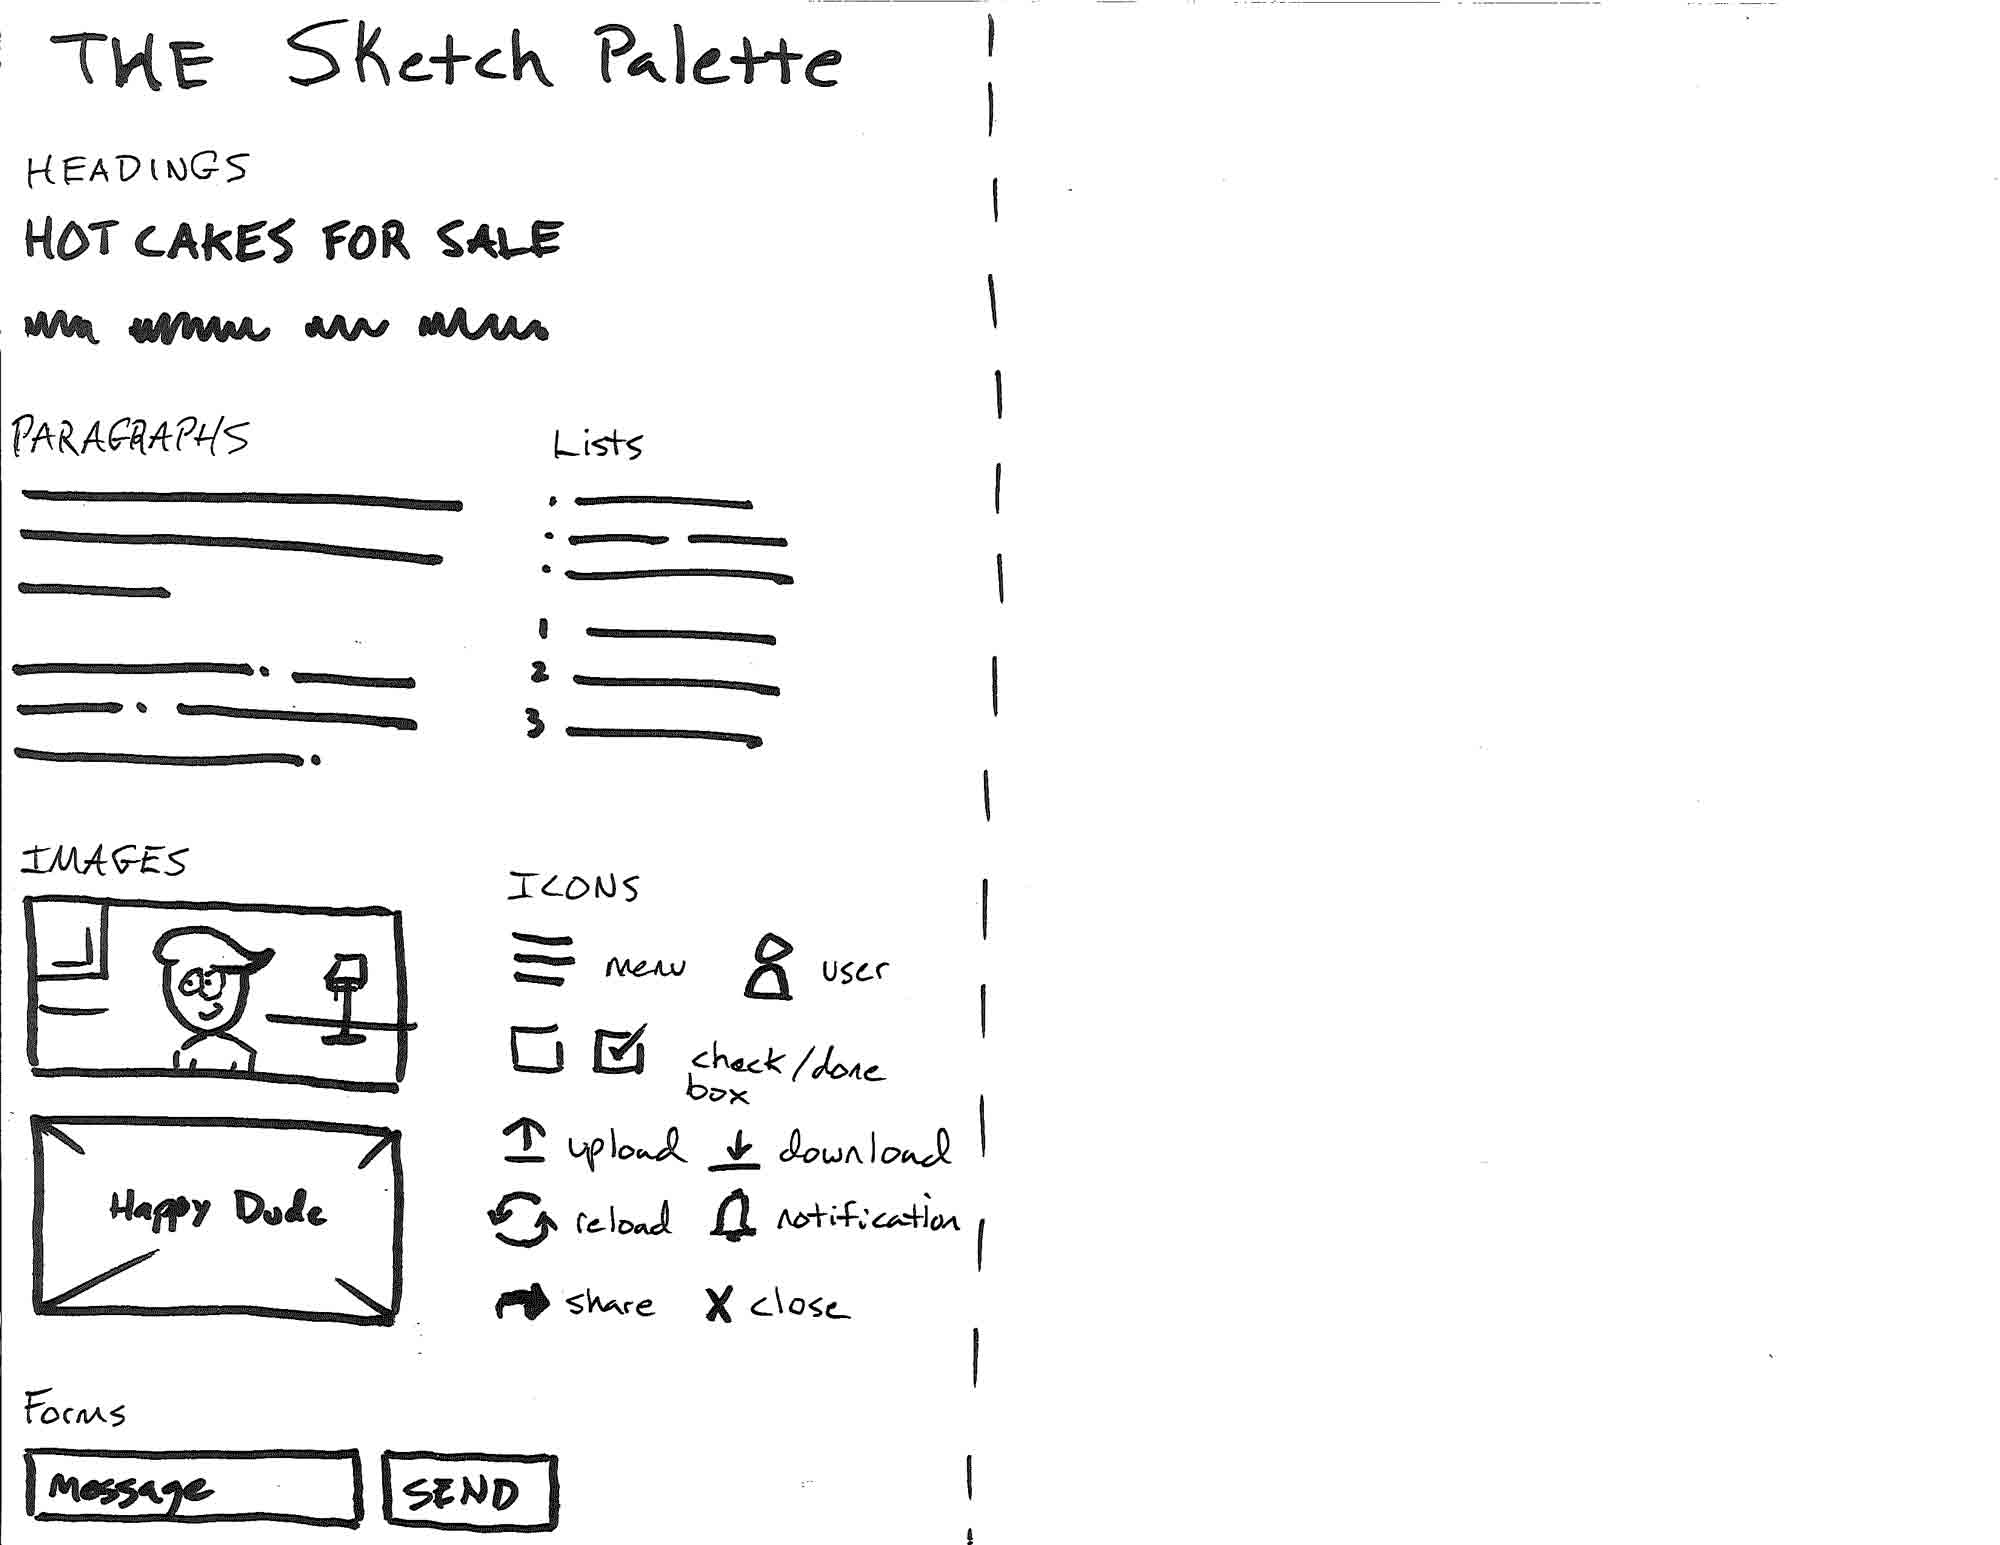 THE Sketch Palette
HEADINGS
HOT CAKES FOR SALE
PARAGRAPHS
Lists
1
2
3
IMAGES
Happy Dude
ICONS
menu user
check/done
box
upload download
reload notification
share X close
Forms
Message SEND